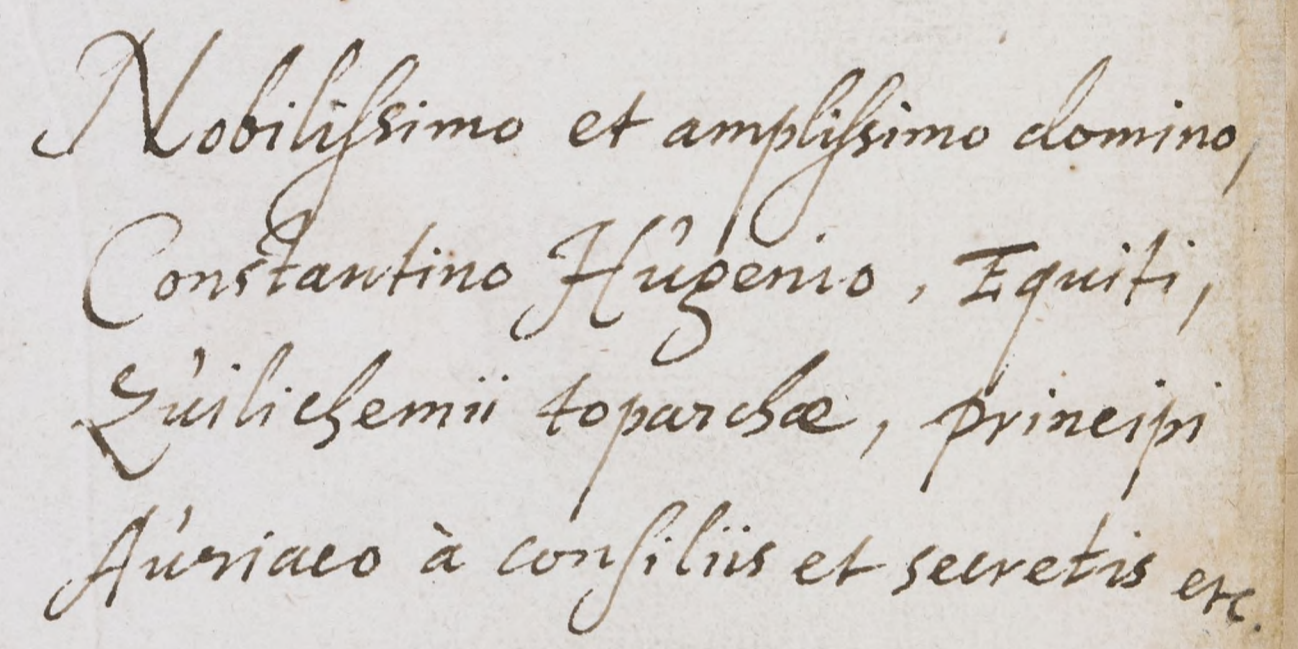 Nobilissimo et amplissimo domino,
Constantino Hugenio, Equiti,
Zuilichemii toparchæ, principi
Auriaco à consiliis et secretis etc.